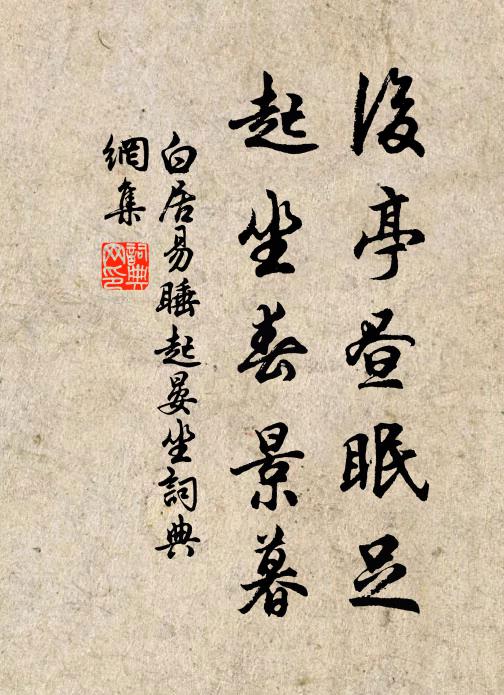 後亭昼眠足
起坐春景暮
白居易睡起晏坐詞典
網集
詞典网印